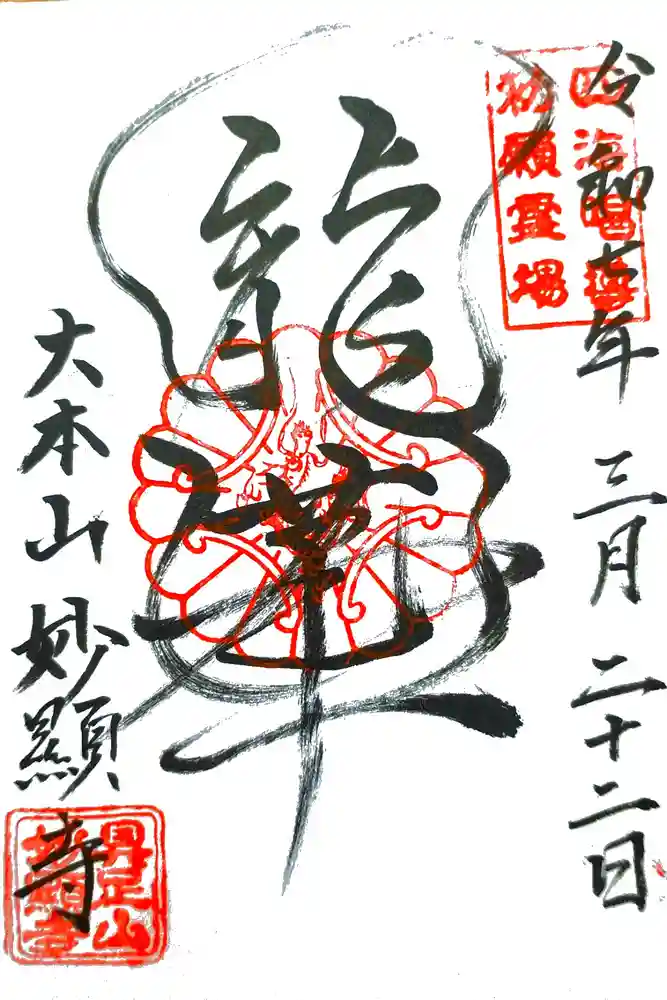 四海唱導
勅願靈場
令和七年 三月 二十二日
龍華
大本山 妙顯寺
具足山
妙顯寺